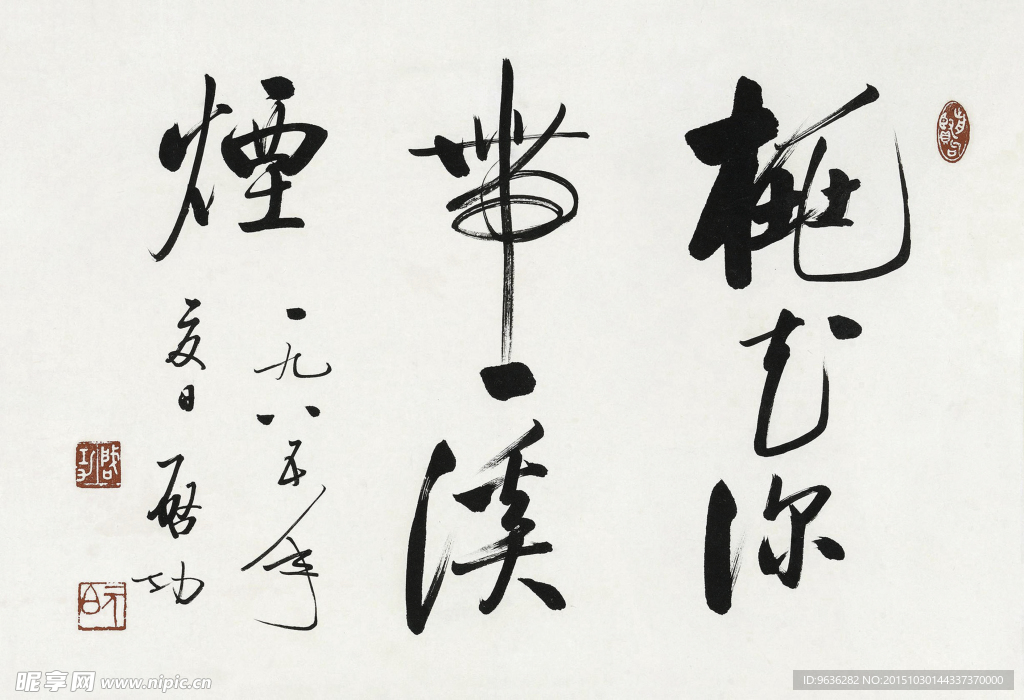 桃花深
帶一溪
煙
一九八五年
夏日
啓功
启功
元白
昵享网 www.nipic.cn
ID:9636282 NO:20151030144337370000